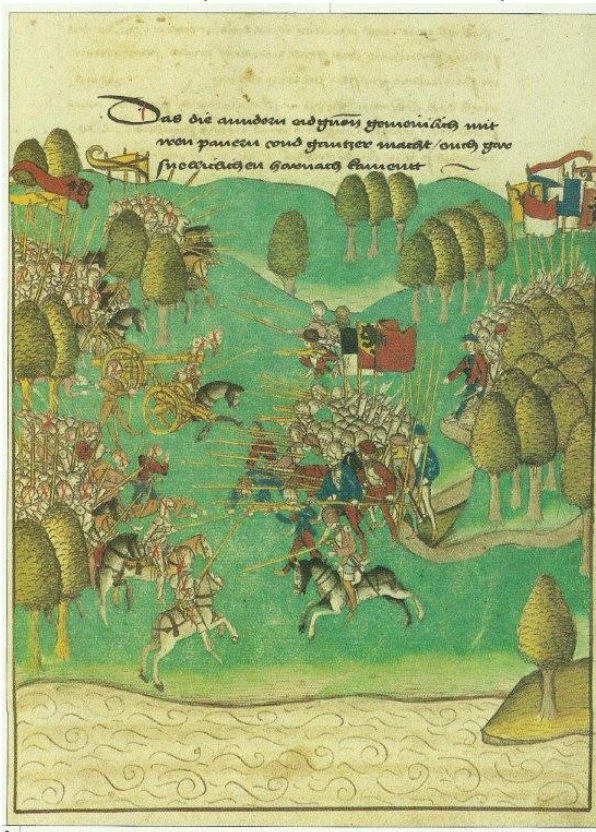 Das die anndern eidgnon̄ gemeinlich mit
iren panern vnd gantzer macht / ouch gar
snelliclichen harnach kament